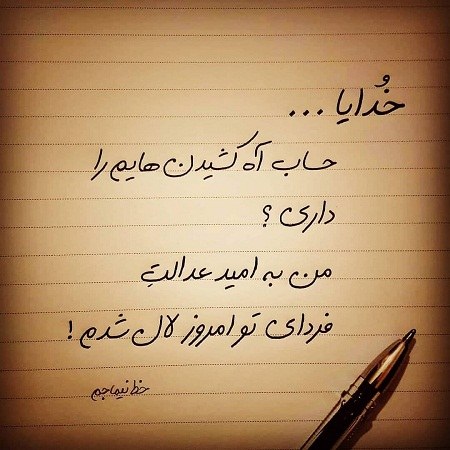 خُدایا ...
حساب آه کشیدن هایم را
داری ؟
من به امید عدالتِ
فردای تو امروز لال شدم !
خط نیما جم